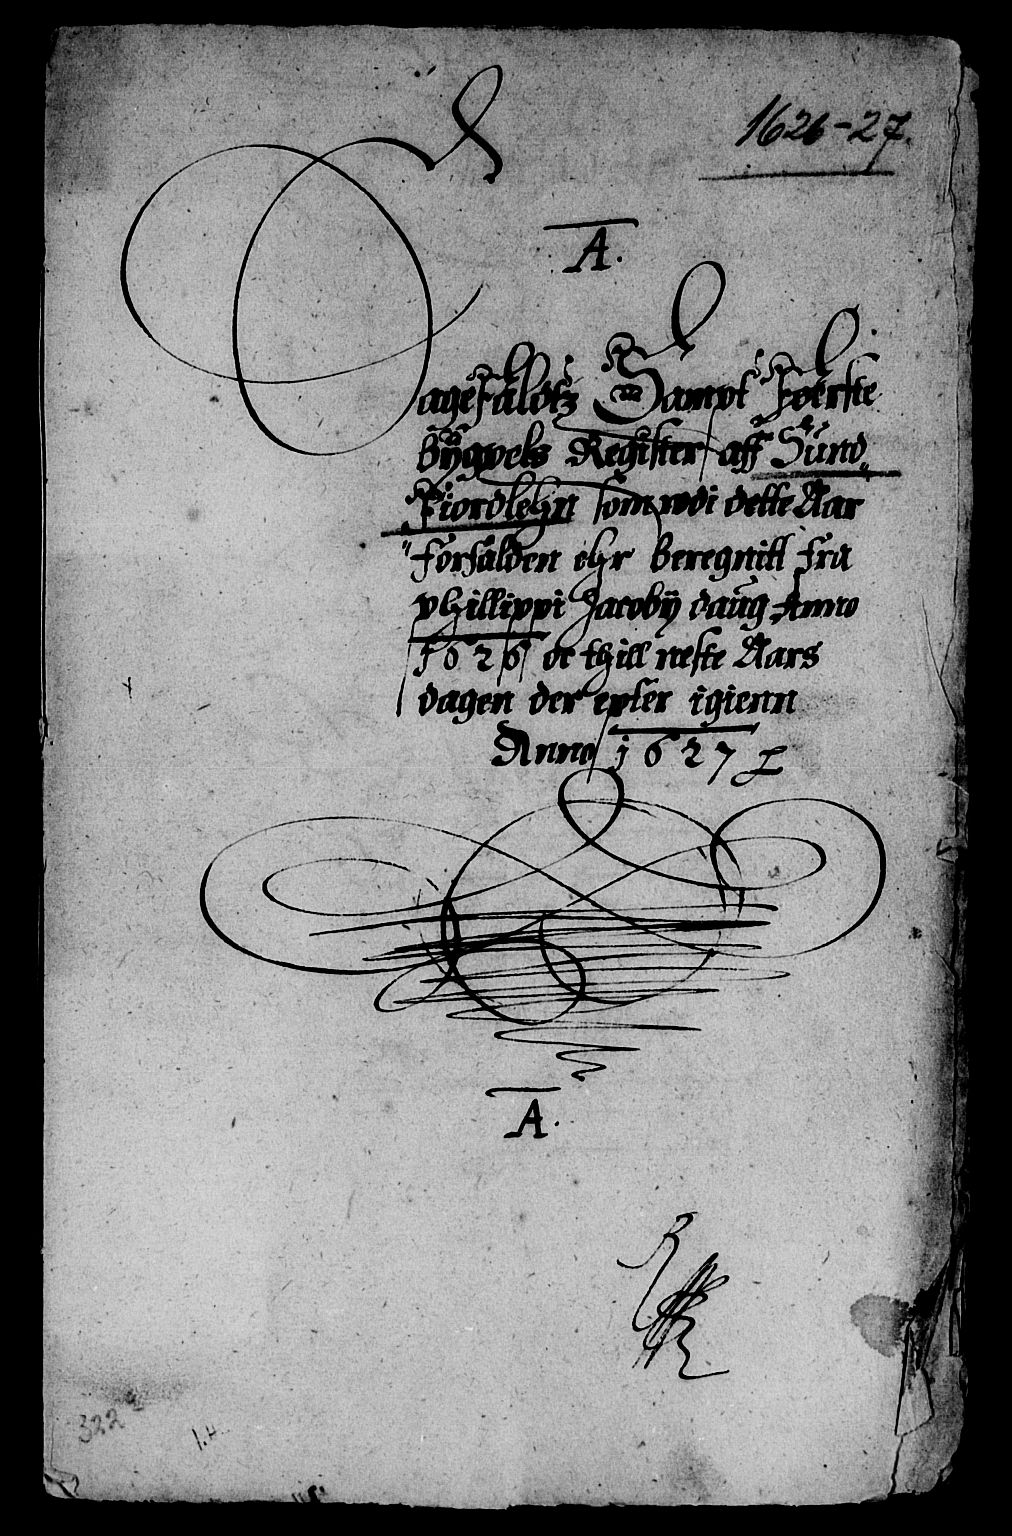 1626-27.
A.
Sagefaldtz Sampt Føerste
Bÿgxels Register aff Sund,,
,,Fiordlehn som wdi dette Aar
forfalden ehr Beregnitt fra
phillippi Jacobÿ daug Anno
1626 oc thill neste Aars
dagen der epter igienn
Anno 1627
A.
322